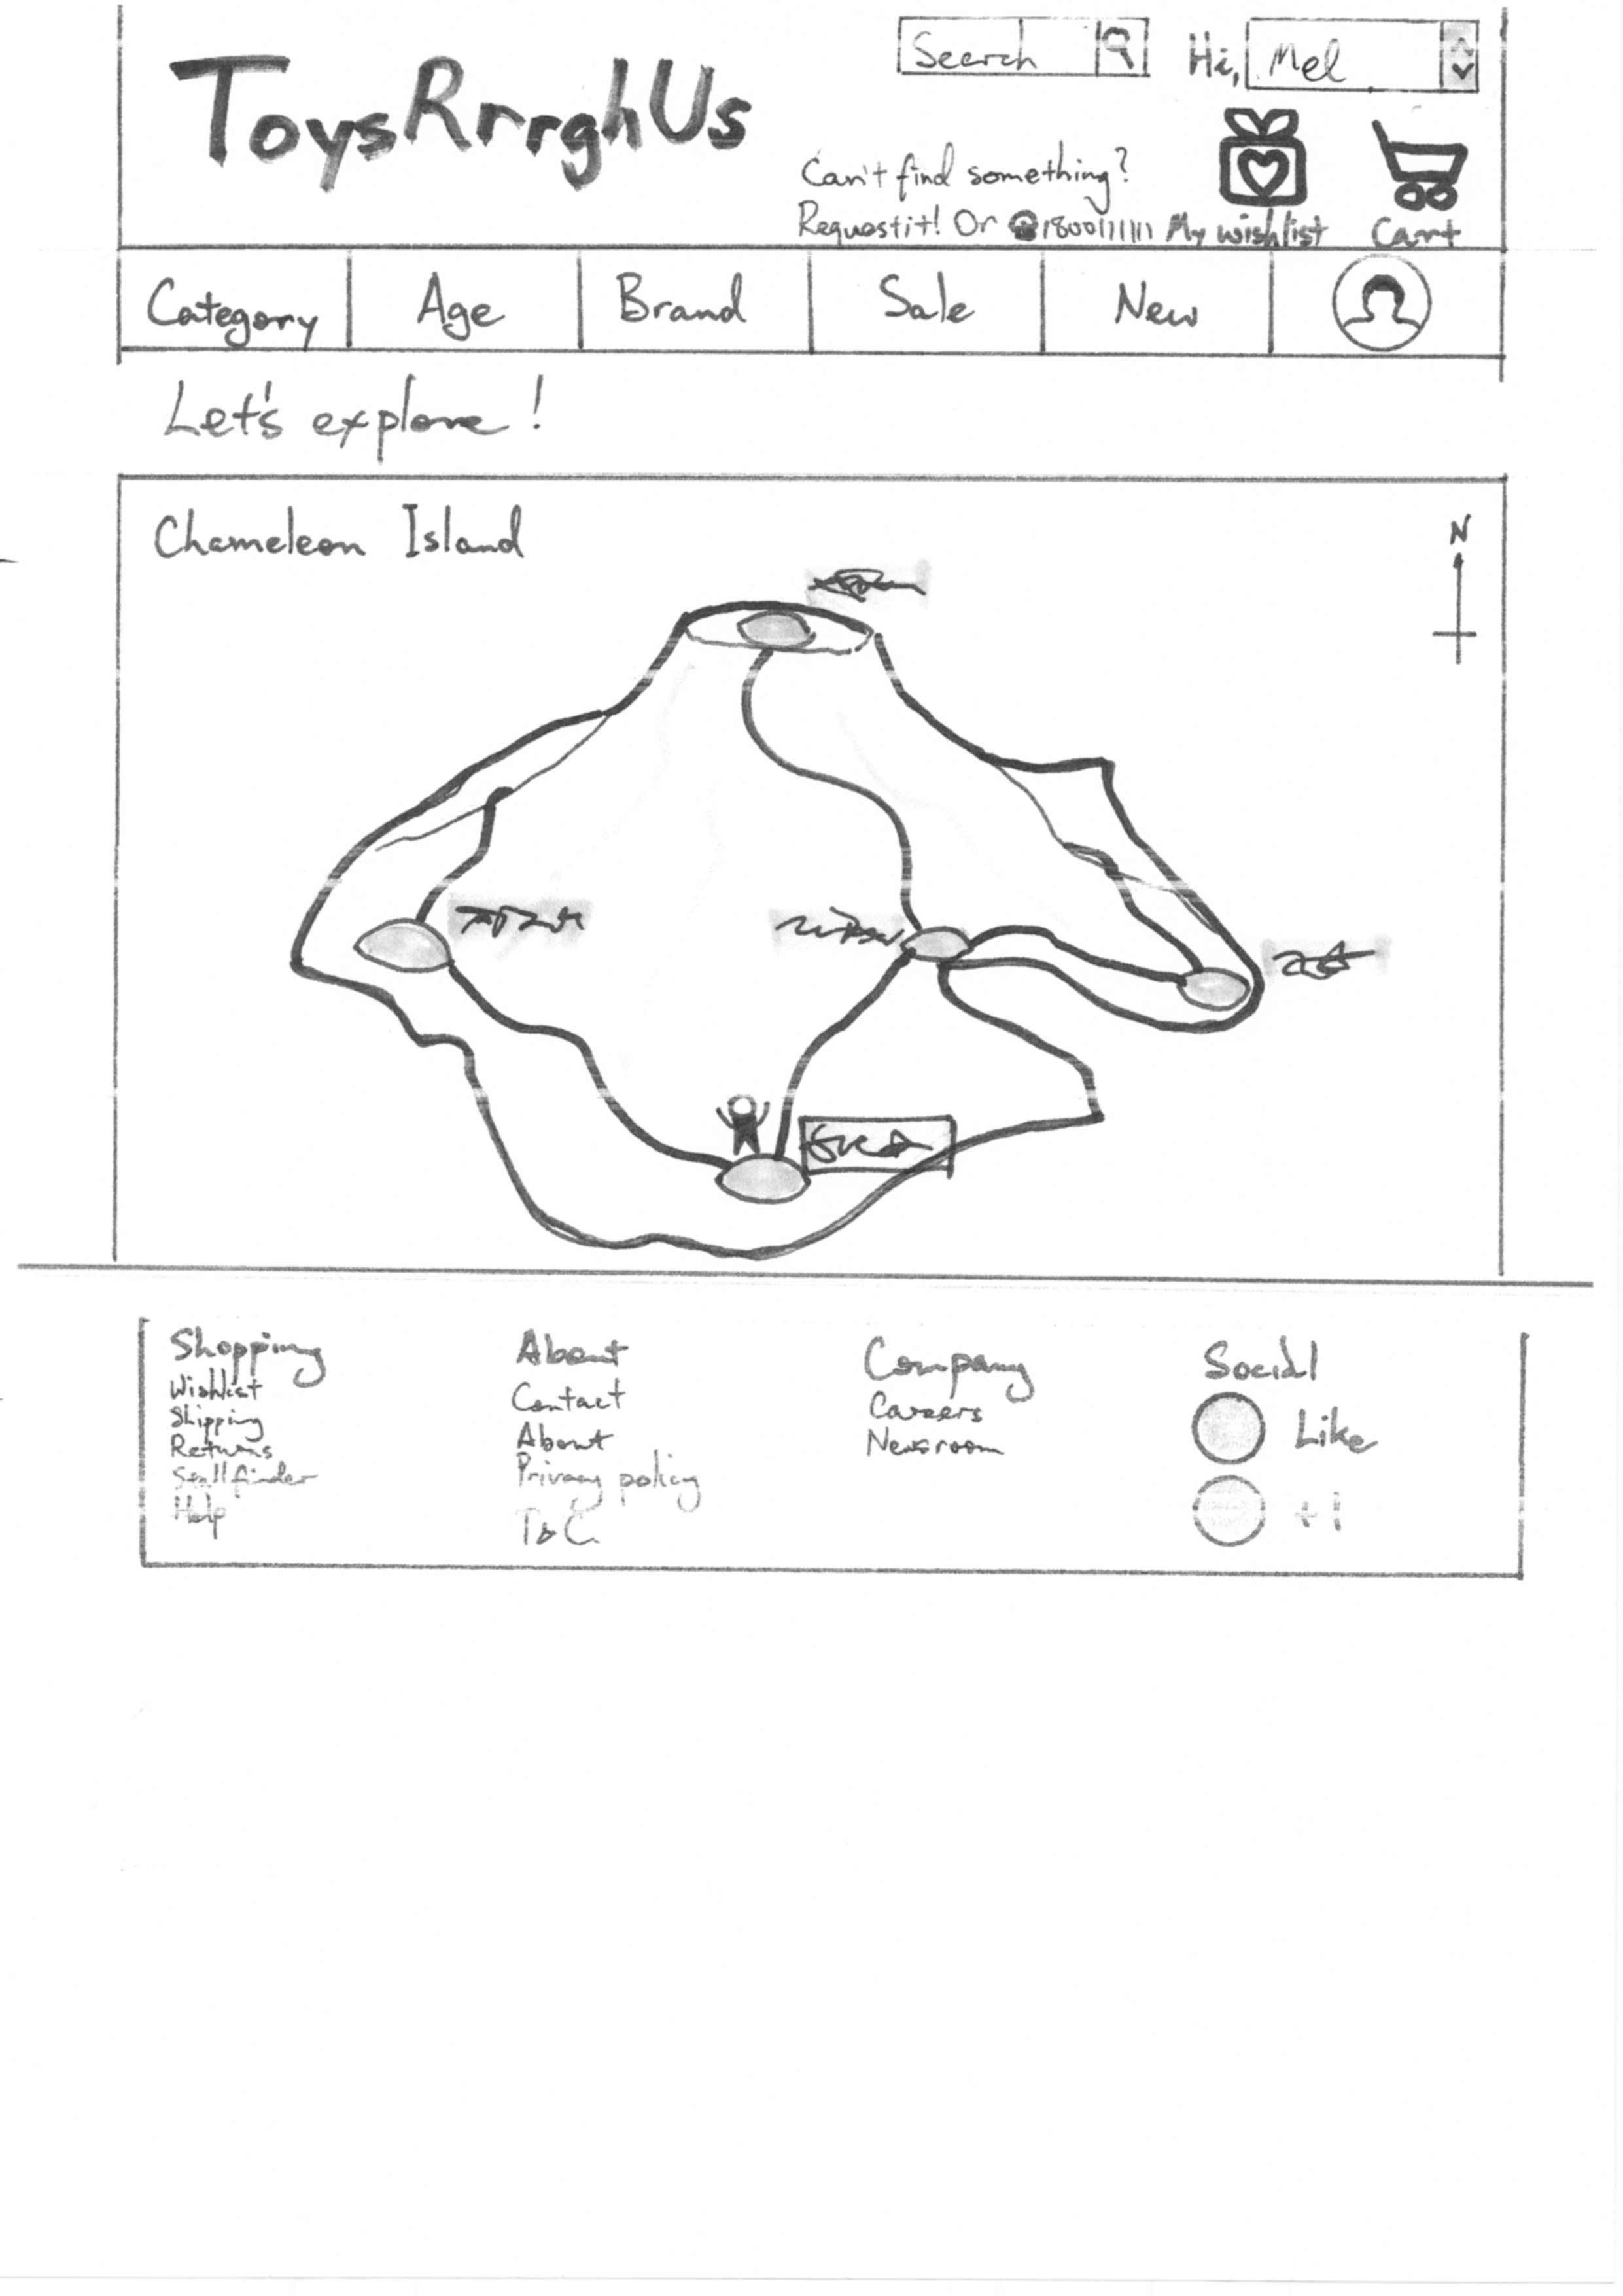 ToysRrrghUs
Search
Hi, Mel
Can't find something?
Request it! Or 1800111111
My wishlist
Cart
Category
Age
Brand
Sale
New
Let's explore!
Chameleon Island
N
Shopping
Wishlist
Shipping
Returns
Stallfinder
Help
About
Contact
About
Privacy policy
T&C
Company
Careers
Newsroom
Social
Like
+1